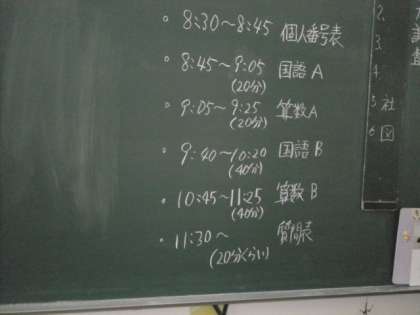 ・8:30～8:45 個人番号表
・8:45～9:05 国語A
(20分)
・9:05～9:25 算数A
(20分)
・9:40～10:20 国語B
(40分)
・10:45～11:25 算数B
(40分)
・11:30～ 質問表
(20分くらい)
2.
3.
4
5 社
6 図